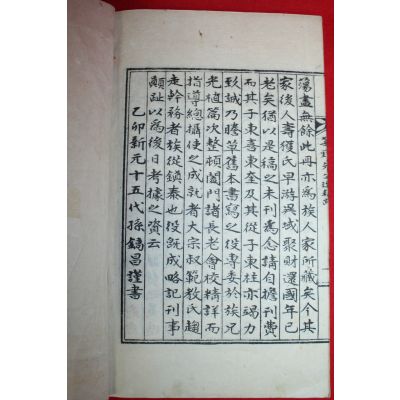 蕩盡無餘此冊亦爲族人家所藏矣今其
家後人壽羅氏早游異域聚財還國年已
老矣猶以是稿之未刊爲念請自擔刊費
而其子東喜東奎及其從子東柱亦竭力
致誠乃謄草舊本書寫之役專委於族兄
光植篇次整頓闔門諸長老會校精詳而
指導總攝使之成就者大宗叔範敎氏趨
走幹務者族從鎭泰也役旣成略記刊事
顚趾以爲後日考據之資云
乙卯新元十五代孫鎬昌謹書